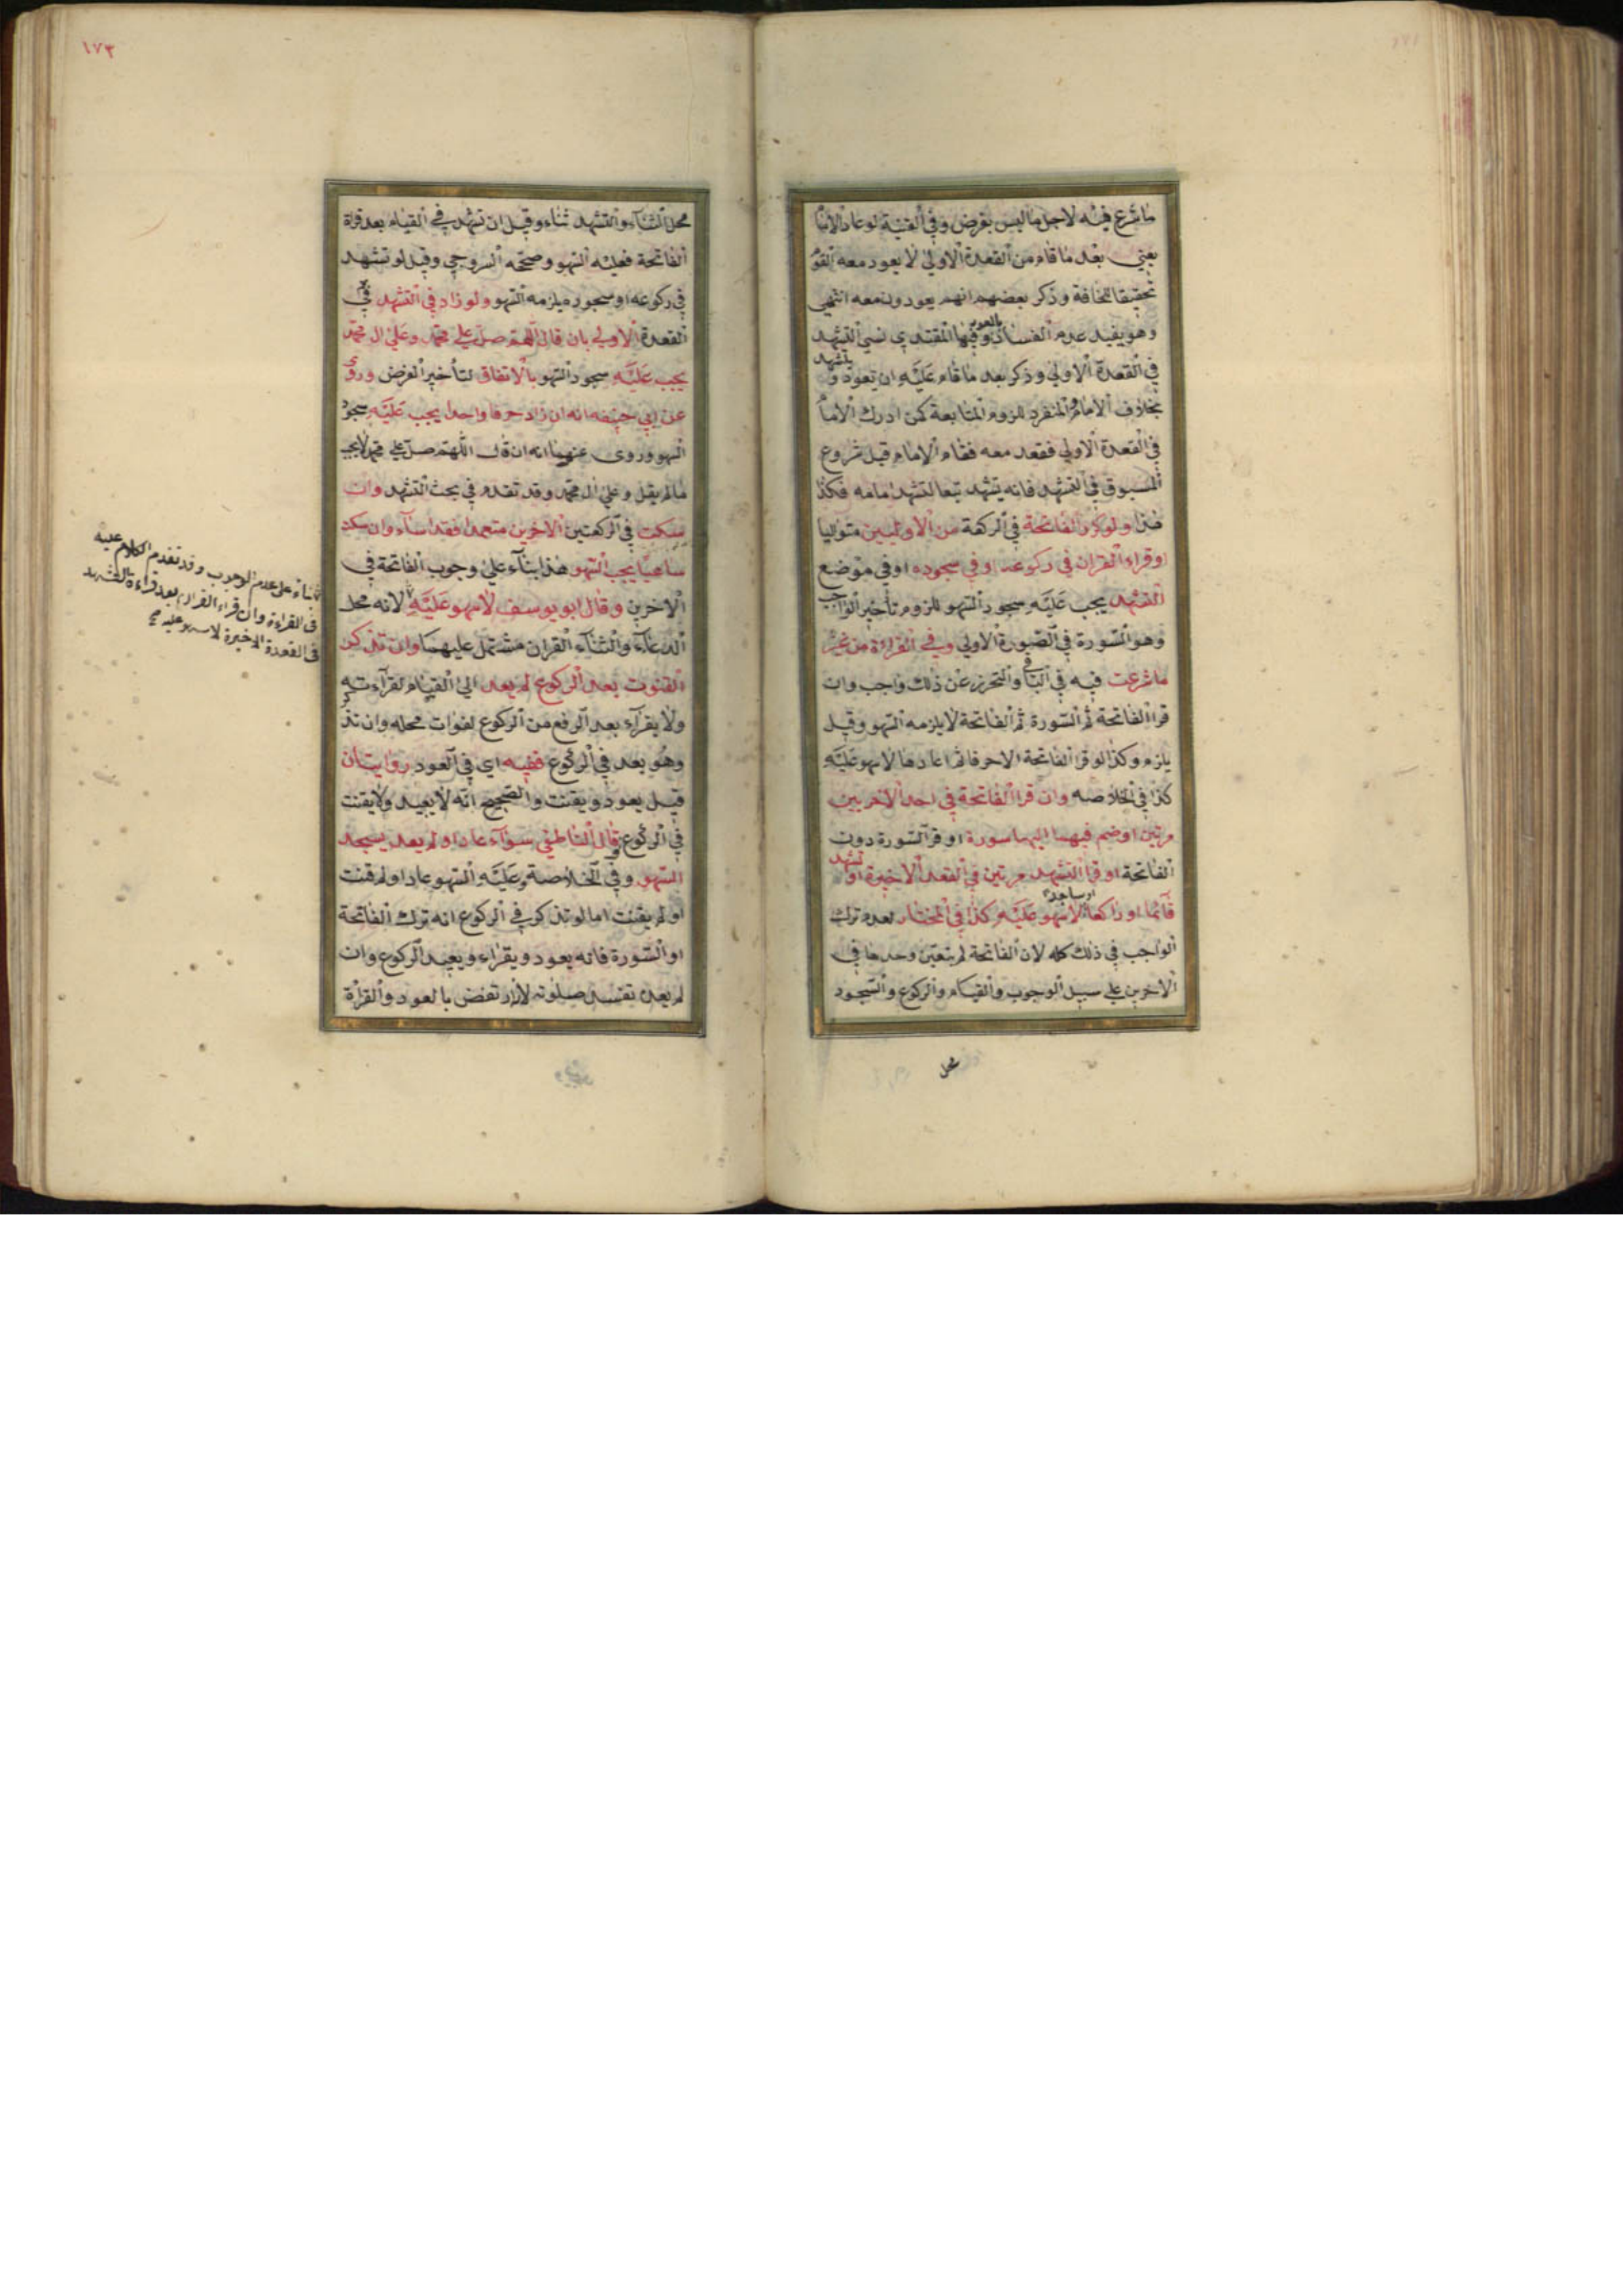 ما شرع فيه لاجل ما ليس بفرض وفي القنية لو عاد الاما
يعني بعد ما قام من القعدة الاولى لا يعود معه القو
تحقيقا للمخالفة وذكر بعضهم انهم يعودون معه انتهى
وهو يفيد عدم الفساد بالعود وفيها المقتدي نسي التشهد
في القعدة الاولى وذكر بعد ما قام عليه ان يعود و يتشهد
بخلاف الامام والمنفرد للزوم المتابعة كمن ادرك الاما
في القعدة الاولى فقعد معه فقام الامام قبل شروع
المسبوق في التشهد فانه يتشهد تبعا لتشهد امامه فكذا
هذا ولو كرر الفاتحة في الركعة من الاوليين متواليا
او قراء القران في ركوعه او في سجوده او في موضع
التشهد يجب عليه سجود السهو للزوم تأخير الواجب
وهو السورة في الصورة الاولى وفي القراءة من غير
ما شرعت فيه في الباقي والتحرز عن ذلك واجب وان
قرا الفاتحة ثم السورة ثم الفاتحة لا يلزمه السهو وقيل
يلزم وكذا لو قرا الفاتحة الا حرفا ثم اعادها لا سهو عليه
كذا في الخلاصه وان قرا الفاتحة في احد الاخريين
مرتين او ضم فيهما اليها سورة او قرا السورة دون
الفاتحة او قرا التشهد مرتين في القعدة الاخيرة او تشهد
قآئما او راكعا او ساجدا لا سهو عليه كذا في المختار لعدم ترك
الواجب في ذلك كله لان الفاتحة لم يتعين وحدها في
الاخرين على سبيل الوجوب والقيام والركوع والسجود
محل
١٧٣
محل الثنآء والتشهد ثناء وقيل ان تشهد في القيام بعد قراة
الفاتحة فعليه السهو وصححه السروجي وقيل لو تشهد
في ركوعه او سجوده يلزمه السهو ولو زاد في التشهد في
القعدة الاولى بان قال اللهم صل على محمد وعلى ال محمد
يجب عليه سجود السهو بالاتفاق لتأخير الفرض وروي
عن ابي حنيفه انه ان زاد حرفا واحدا يجب عليه سجود
السهو وروى عنهما انه ان قال اللهم صل على محمد لا يجب
ما لم يقل وعلى ال محمد وقد تقدم في بحث التشهد وان
سكت في الركعتين الاخرين متعمدا فقد اسآء وان سكت
ساهيا يجب السهو هذا بنآء على وجوب الفاتحة في
الاخرين وقال ابو يوسف لا سهو عليه لانه محل
الدعآء والثنآء القران مشتمل عليهما وان تذكر
القنوت بعد الركوع لم يعد الى القيام لقرآءته
ولا يقرآء بعد الرفع من الركوع لفوات محله وان تذكر
وهو بعد في الركوع ففيه اي في العود روايتان
قيل يعود ويقنت والصحيح انه لا يعيد ولا يقنت
في الركوع وقال الناطفي سوآء عاد او لم يعد يسجد
السهو وفي الخلاصة وعليه السهو عاد او لم قنت
او لم يقنت اما لو تذكر في الركوع انه ترك الفاتحة
او السورة فانه يعود ويقراء ويعيد الركوع وان
لم يعد تفسد صلوته لارتفض بالعود والقراة
بناء على عدم الوجوب وقد تقدم الكلام عليه
في القراءة وان قراء القران بعد قراءة التشهد
في القعدة الاخيرة لا سهو عليه صح